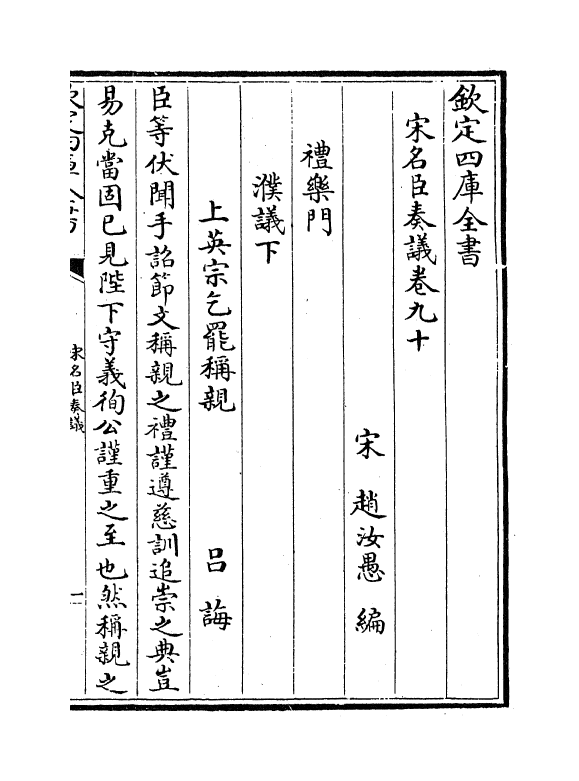 欽定四庫全書
宋名臣奏議卷九十
宋 趙汝愚 編
禮樂門
濮議下
上英宗乞罷稱親 吕誨
臣等伏聞手詔節文稱親之禮謹遵慈訓追崇之典豈
易克當固已見陛下守義徇公謹重之至也然稱親之
欽定四庫全書
宋名臣奏議
一